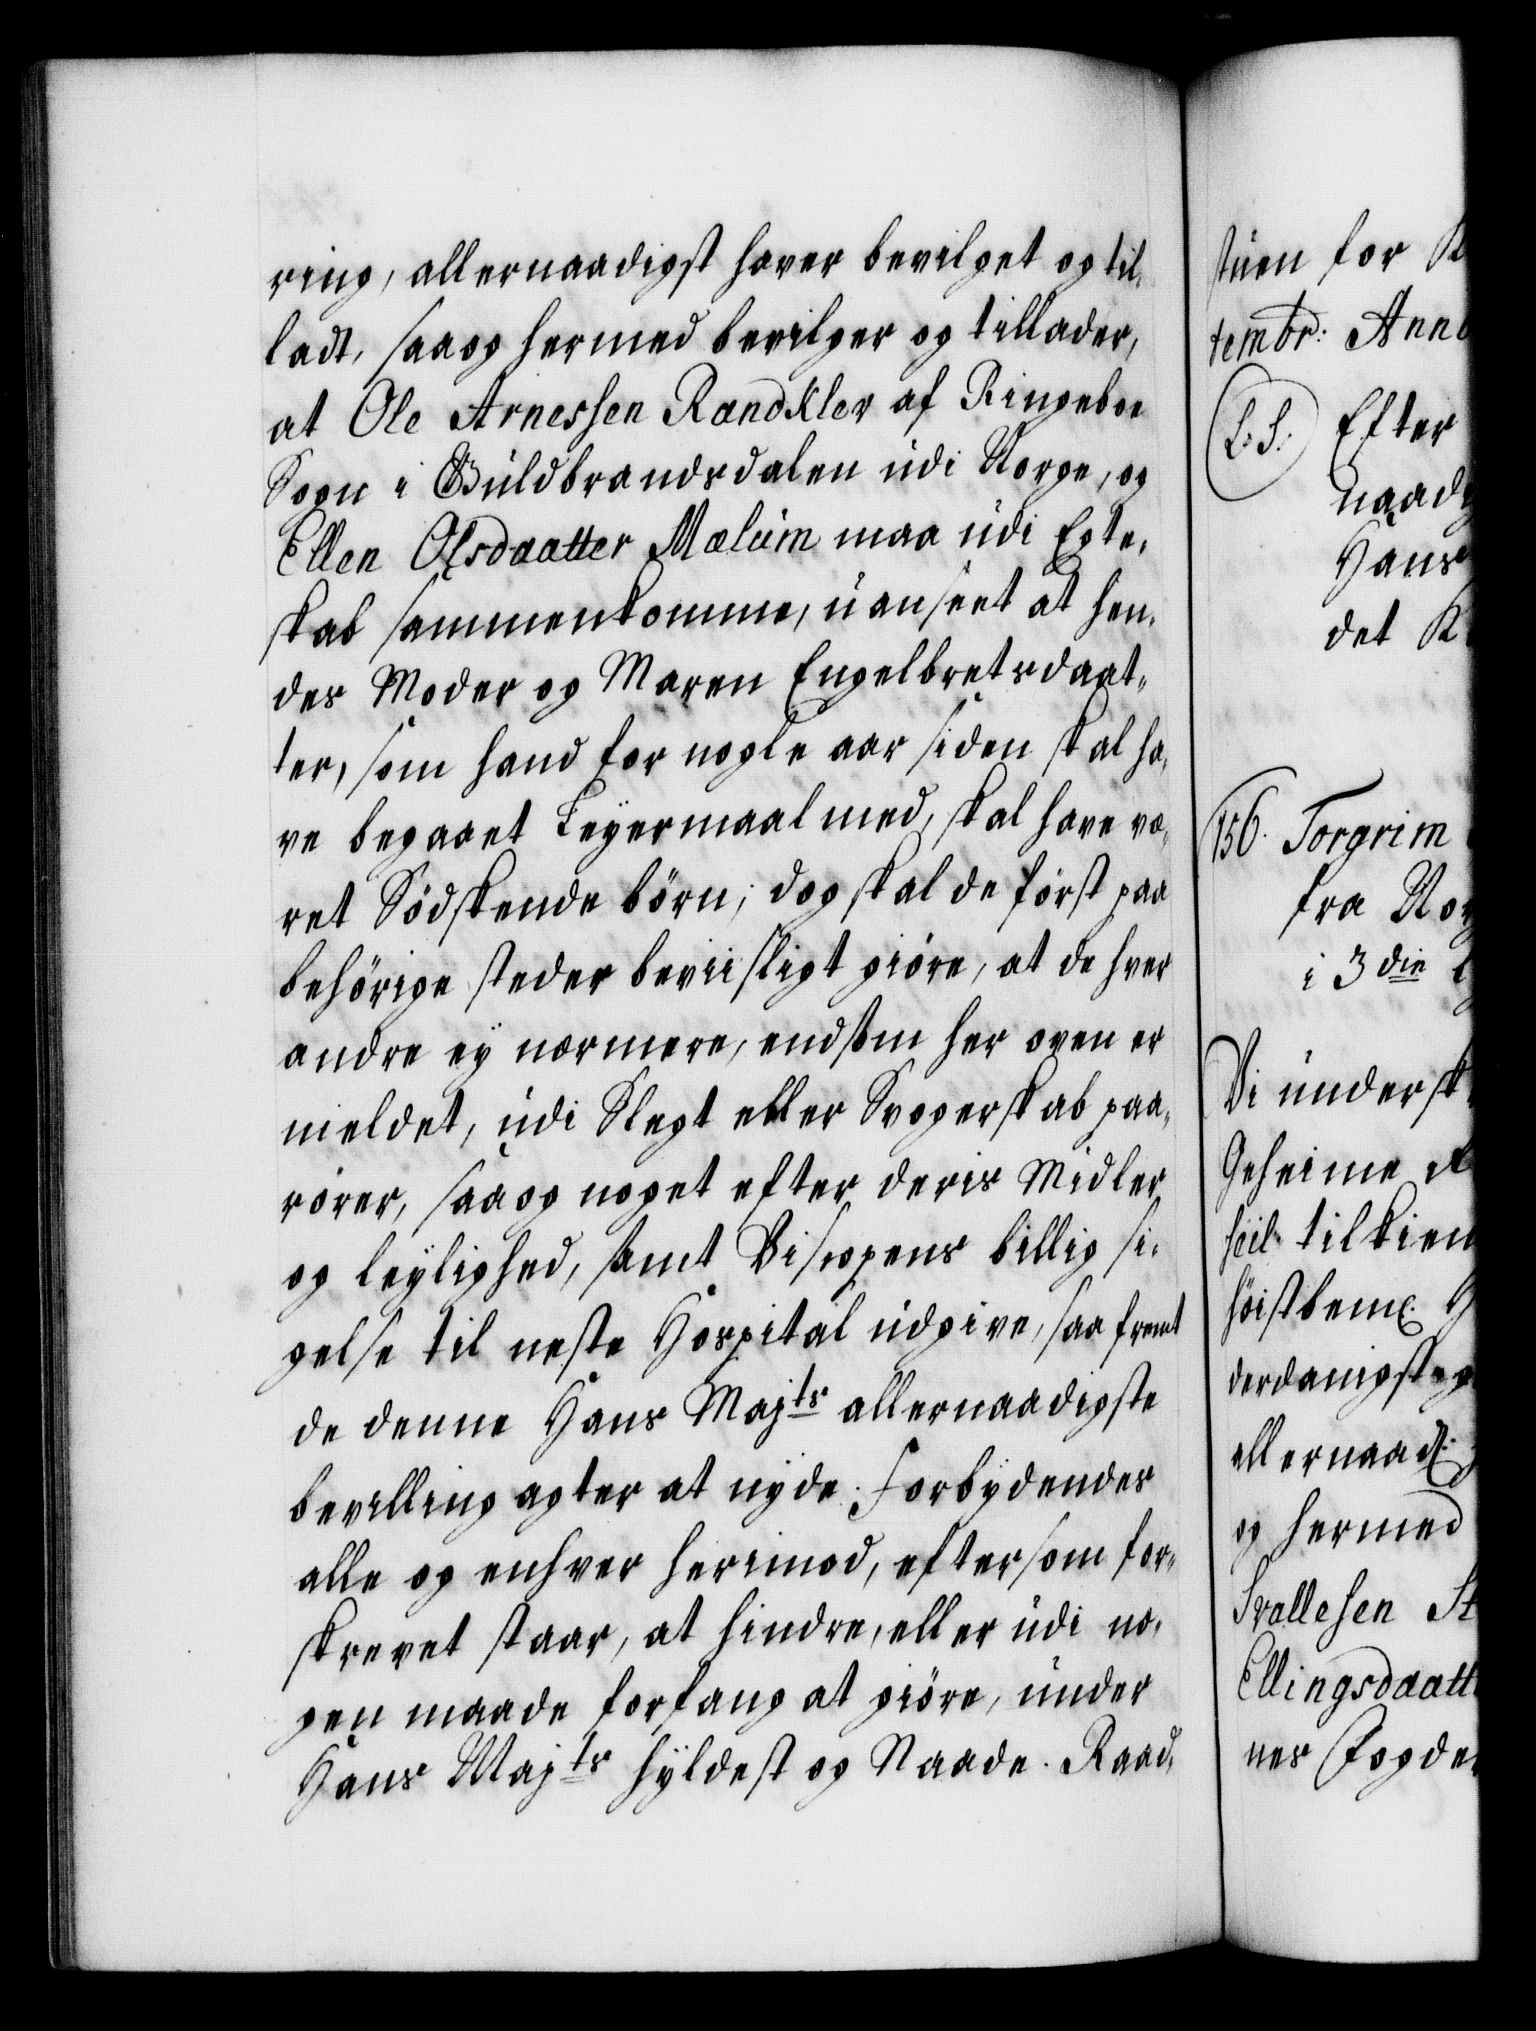 ring, allernaadigst haver bevilget og til-
ladt, saa og hermed bevilger og tillader,
at Ole Arnessen Randkler af Ringeboe
Sogn i Guldbrandsdalen udi Norge, og
Ellen Olsdaatter Mælum maa udi Egte-
skab sammenkomme, uanseet at hen-
des Moder og Maren Engelbretsdaat-
ter, som hand for nogle aar siden skal ha-
ve begaaet Leyermaal med, skal have væ-
ret Södskende börn; dog skal de först paa
behörige steder beviisligt giöre, at de hver
andre ey nærmere, end som her oven er
meldet, udi Slegt eller Svogerskab paa-
rörer, saa og noget efter deris Midler
og leylighed, samt Biscopens billig si-
gelse til neste Hospital udgive, saa fremt
de denne Hans Majts allernaadigste
bevilling agter at nyde. Forbydendes
alle og enhver herimod, eftersom for-
skrevet staar, at hindre, eller udi no-
gen maade forfang at giöre, under
Hans Majts hyldest og Naade. Raad-
stuen for K
tembr: Anno
L. S. Efter
naad
Hans
det K
156. Torgrim
fra Nor
i 3die
Vi undersk
Geheime
tilkien
höistbem:
derdanigst
allernaad:
og hermed
Svallesen St
Ellingsdaatt
nes Fogde